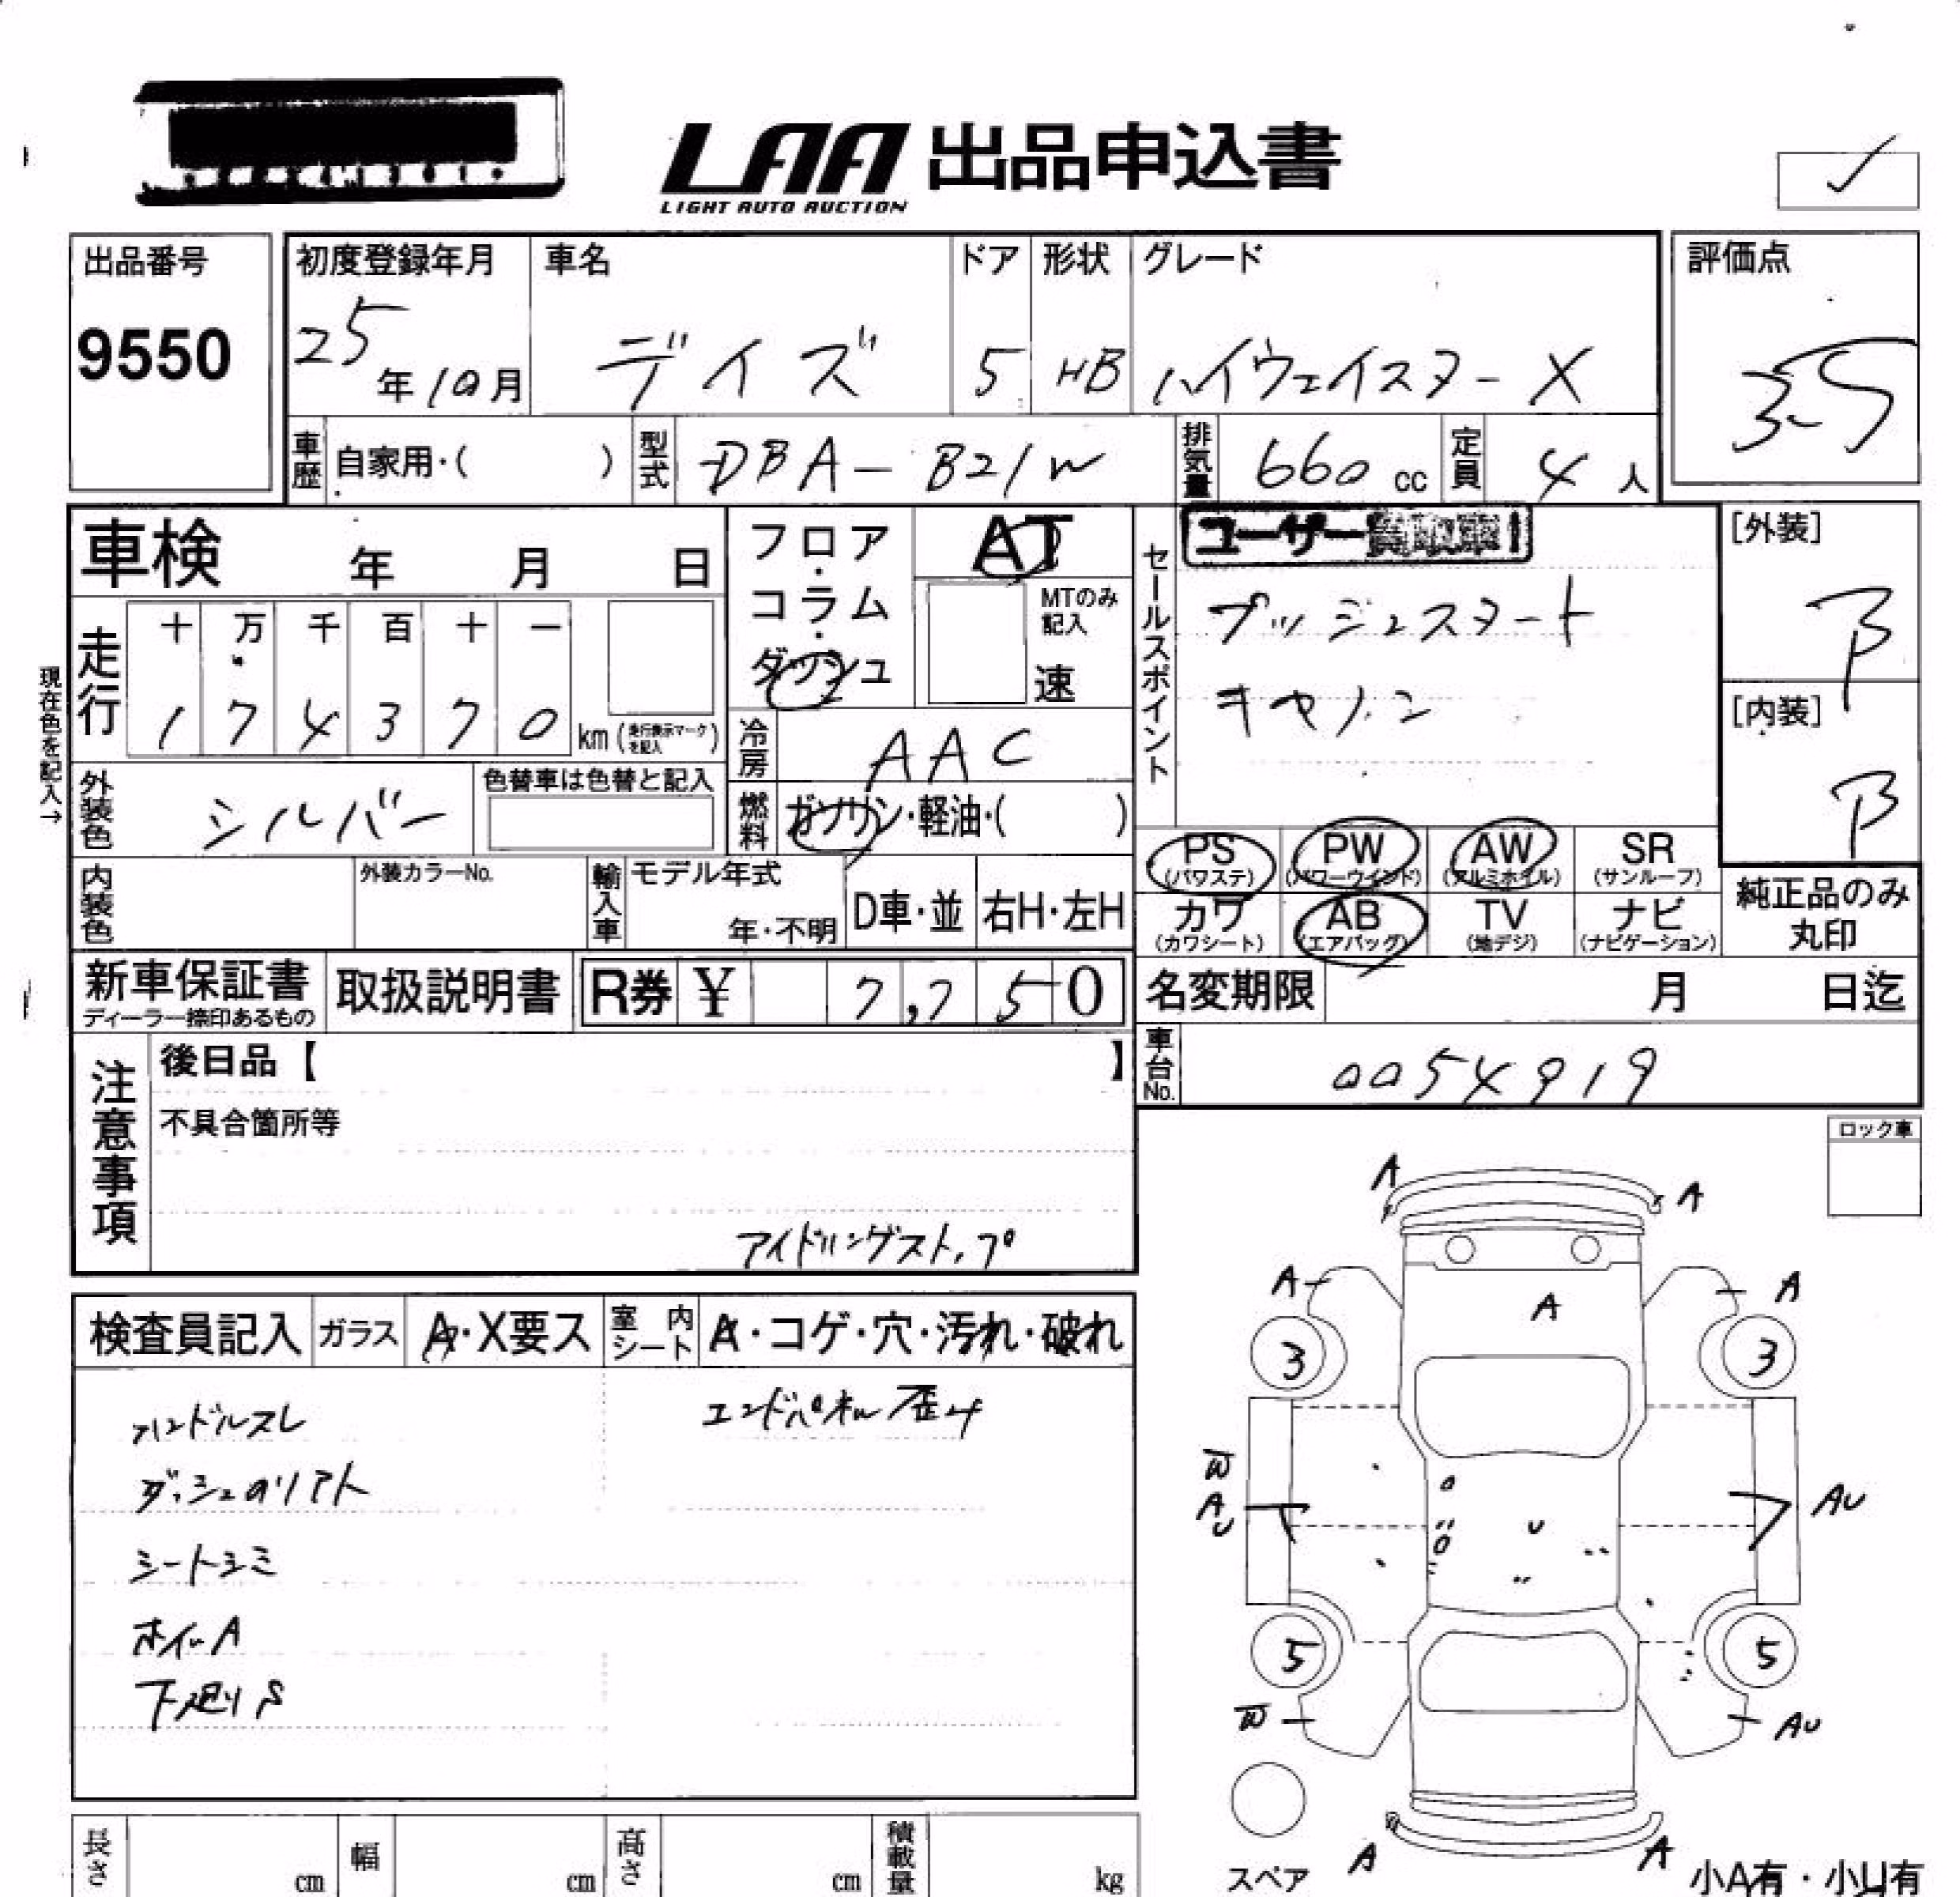 LAA 出品申込書
LIGHT AUTO AUCTION
✓
出品番号
9550
初度登録年月
25年10月
車名
デイズ
ドア
5
形状
HB
グレード
ハイウェイスター X
評価点
3.5
車歴 自家用・( )
型式 DBA-B21W
排気量 660 cc
定員 4人
車検 年 月 日
フロア・コラム・ダッシュ
AT
MTのみ記入
速
セールスポイント
ユーザー
プッシュスタート
キセノン
[外装]
B
[内装]
B
現在色を記入→
走行
十 万 千 百 十 一
1 7 4 3 7 0 km (走行表示マークを記入)
冷房 AAC
外装色 シルバー
色替車は色替と記入
燃料 ガソリン・軽油・( )
PS (パワステ)
PW (パワーウインド)
AW (アルミホイル)
SR (サンルーフ)
カワ (カワシート)
AB (エアバッグ)
TV (地デジ)
ナビ (ナビゲーション)
純正品のみ丸印
内装色
外装カラーNo.
輸入車
モデル年式
年・不明
D車・並
右H・左H
新車保証書
ディーラー捺印あるもの
取扱説明書
R券 ¥ 7,750
名変期限 月 日迄
車台No. 0054919
注意事項
後日品【 】
不具合箇所等
アイドリングストップ
ロック車
検査員記入
ガラス A・X要ス
室内シート A・コゲ・穴・汚れ・破れ
ハンドルスレ
エンドパネル歪み
ダッシュのリアト
シートシミ
ホイルA
下廻りS
A
A
A
A
A
3
3
W
A
U
U
AU
5
5
W
AU
A
A
スペア
小A有・小U有
長さ cm
幅 cm
高さ cm
積載量 kg